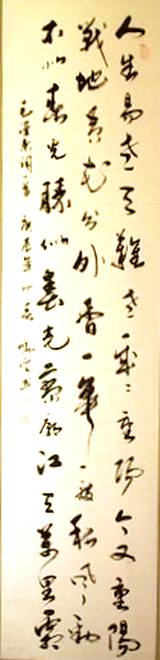 人生易老天難老歲〻重陽今又重陽
戰地黃花分外香一年一度秋風勁
不似春光勝似春光寥廓江天萬里霜
毛澤東詞一首